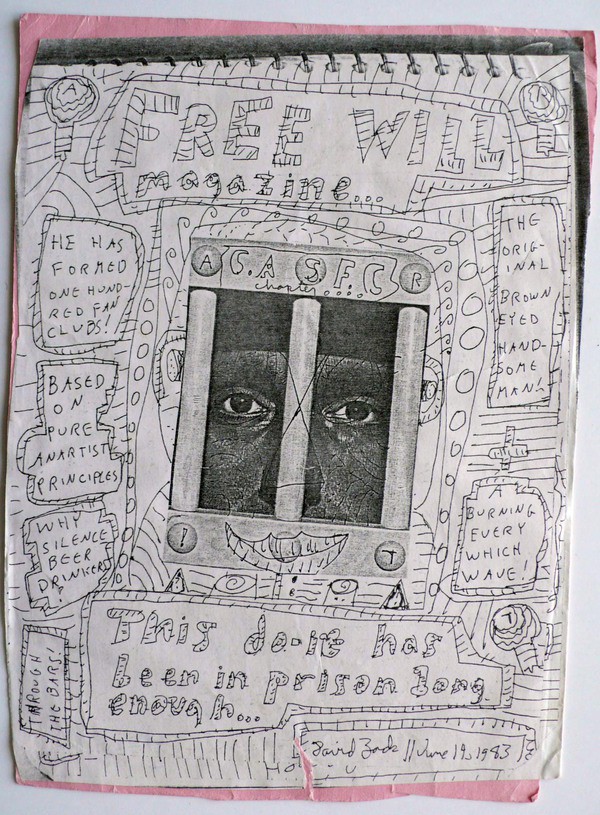 FREE WILL
magazine...
HE HAS
FORMED
ONE HUND-
RED FAN
CLUBS!
BASED
ON
PURE
ANARTIST
PRINCIPLES
WHY
SILENCE
BEER
DRINKERS
THROUGH
THE BARS!
A C.A.S.F.C. R
chapter....
! T
THE
ORIG-
INAL
BROWN
EYED
HAND-
SOME
MAN!
A
BURNING
EVERY
WHICH
WAVE!
This do-it has
been in prison long
enough...
David Zack // June 19, 1983